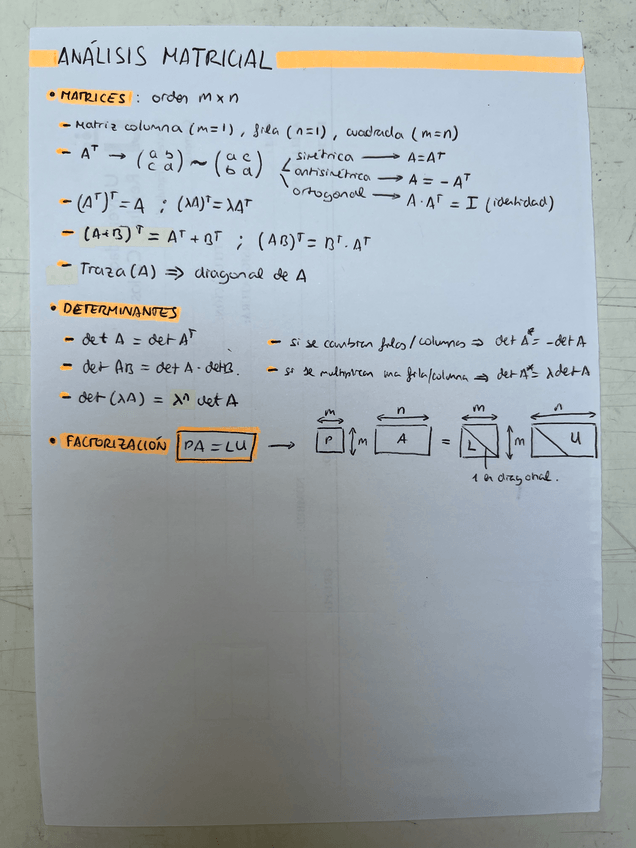 ANÁLISIS MATRICIAL
• MATRICES : orden m x n
- Matriz columna (m=1), fila (n=1), cuadrada (m=n)
- Aᵀ → (a b / c d) ~ (a c / b d)
simétrica → A=Aᵀ
antisimétrica → A = -Aᵀ
ortogonal → A·Aᵀ = I (identidad)
- (Aᵀ)ᵀ = A ; (λA)ᵀ = λAᵀ
- (A+B)ᵀ = Aᵀ + Bᵀ ; (AB)ᵀ = Bᵀ·Aᵀ
- Traza (A) ⇒ diagonal de A
• DETERMINANTES
- det A = det Aᵀ
- si se cambian filas/columnas ⇒ det A* = -det A
- det AB = det A · det B.
- si se multiplican una fila/columna ⇒ det A* = λ det A
- det (λA) = λⁿ det A
• FACTORIZACIÓN PA = LU → m P m n A = m L m n U
1 en diagonal.